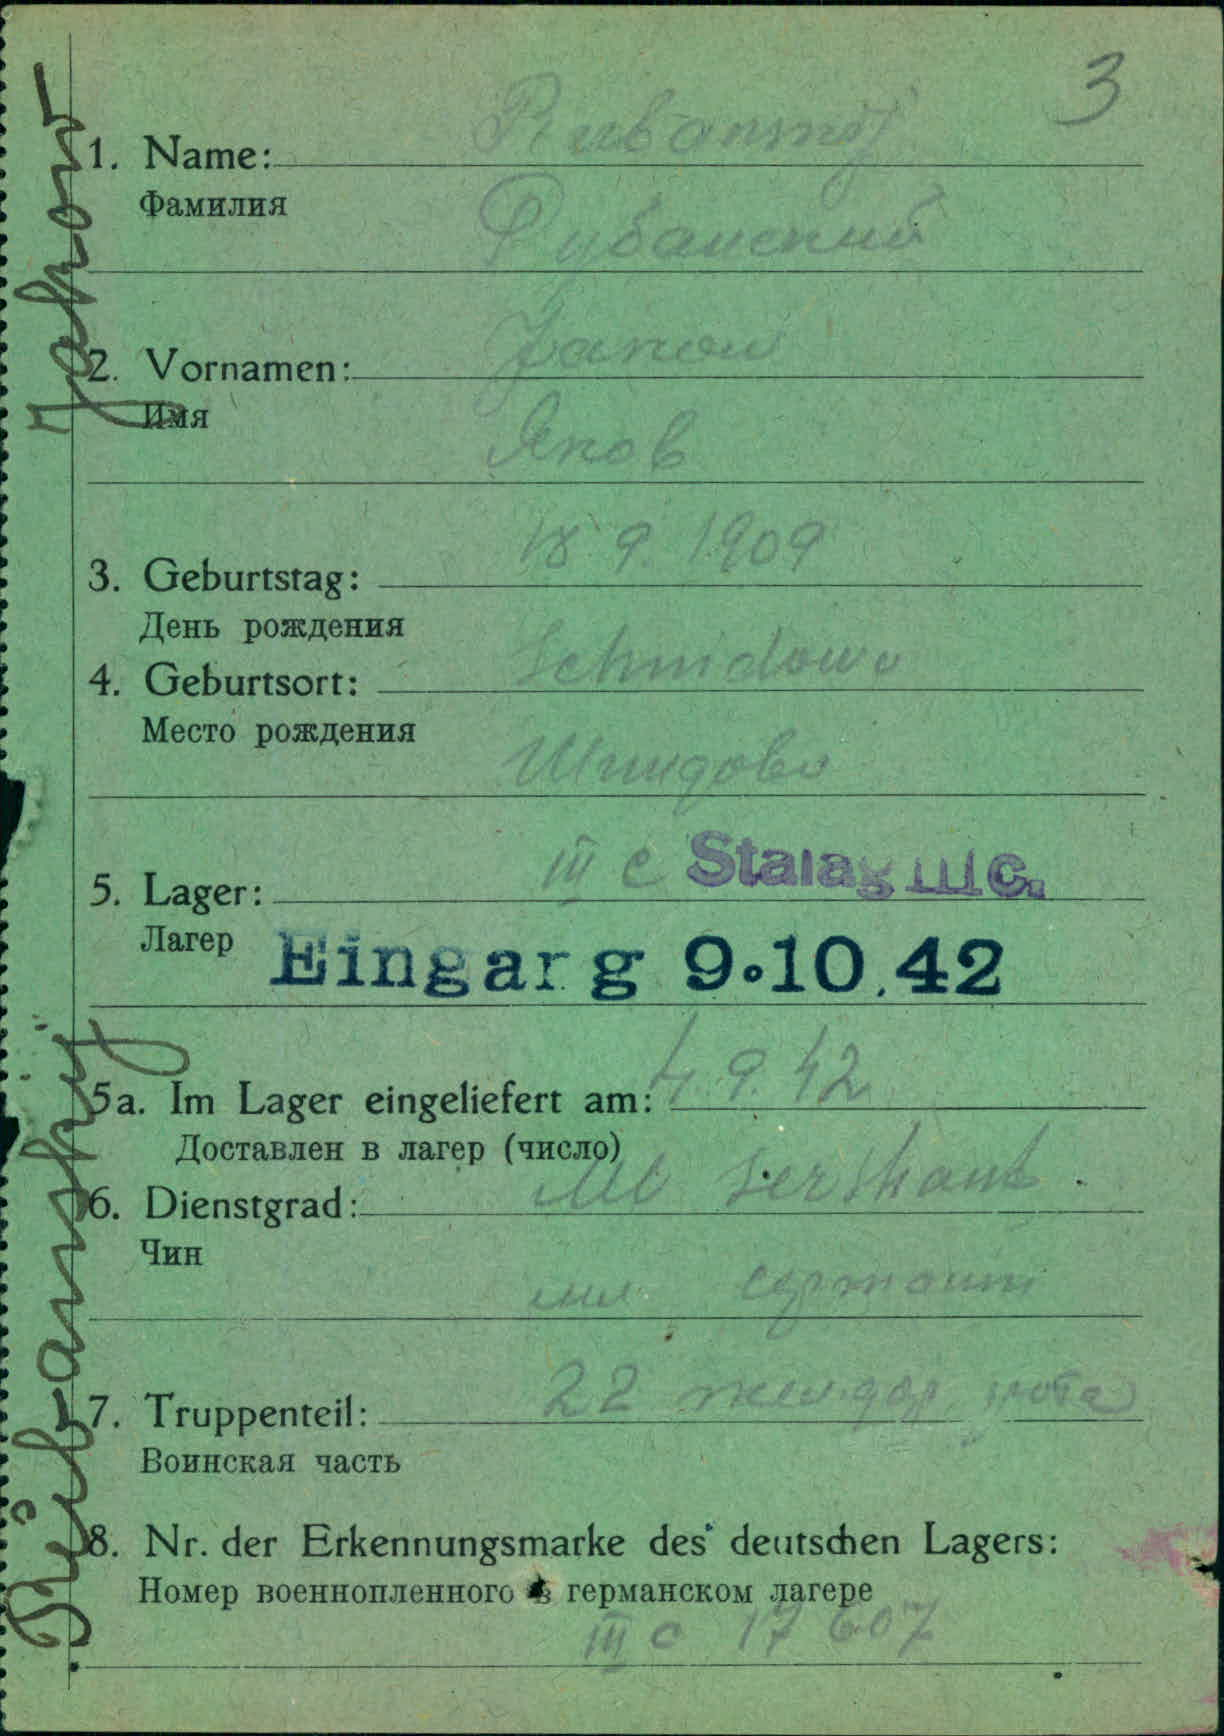 3
1. Name: Rubanskij
Фамилия
Рубанский
2. Vornamen: Jakow
Имя
Яков
3. Geburtstag: 18.9.1909
День рождения
4. Geburtsort: Schmidowo
Место рождения
Шмидово
5. Lager: III C Stalag III C.
Лагер
Eingang 9.10.42
5a. Im Lager eingeliefert am: 4.9.42
Доставлен в лагер (число)
6. Dienstgrad: Ml Sershant
Чин
мл сержант
7. Truppenteil: 22 рота
Воинская часть
8. Nr. der Erkennungsmarke des deutschen Lagers:
Номер военнопленного в германском лагере
III c 17607
Rubanskij Jakow